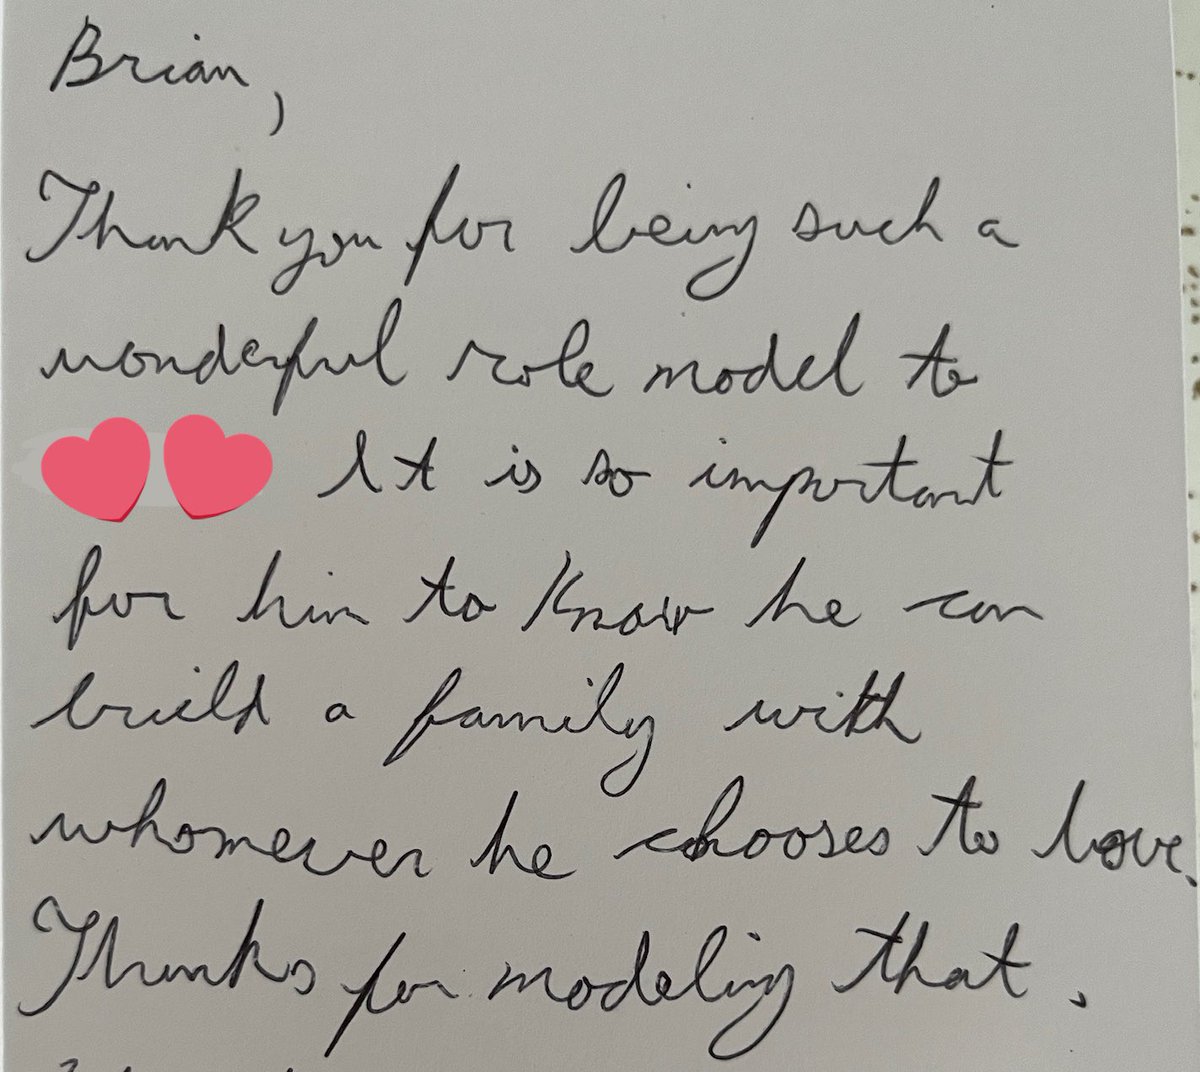 Brian,
Thank you for being such a
wonderful role model to
It is so important
for him to know he can
build a family with
whomever he chooses to love.
Thanks for modeling that.